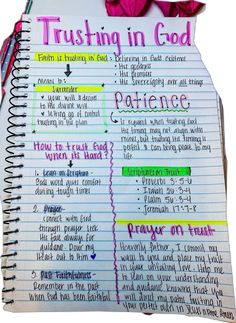 Trusting in God
Faith is trusting in God : believing in God's existence
• His goodness
• His promises
• His Sovereignty over all things
Surrender
• your will & desire
to the divine will
• letting go of control
trusting in His plan
How to trust God
when its Hard?
1. Lean on Scripture
God word gives comfort
during tough times
2. Prayer
connect with God
through prayer. Seek
His face always for
guidance. Pour my
Heart out to Him
3. Past Faithfulness
Remember in the past
When God has been faithful
Patience
is required when trusting God
His timing may not align with
mines, but trusting His timing is
perfect & can bring peace to my
life.
Scriptures on Trust
• Proverbs 3:5-6
• Isaiah
• Psalm 56:3-4
• Jeremiah 17:7-8
Prayer on trust
Heavenly father, I commit my
ways to you and place my trust
in your unfailing love. Help me
to lean on your understanding
and guidance, knowing that you
will direct my paths. trusting in
your perfect plan in Jesus name, Amen